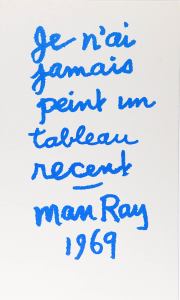 Je n'ai
jamais
peint un
tableau
recent
Man Ray
1969